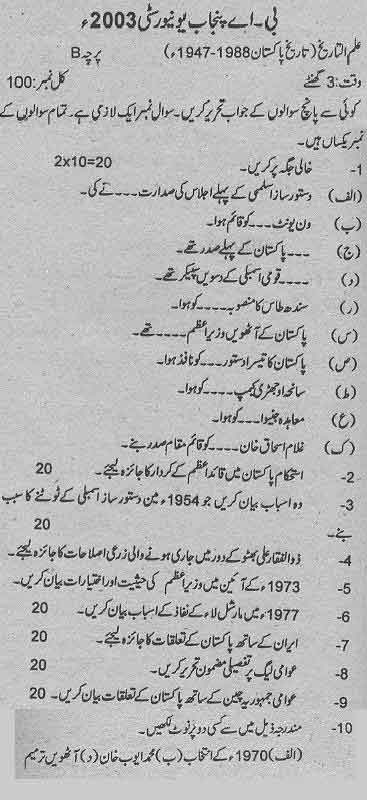 بی۔اے پنجاب یونیورسٹی 2003ء
علم التاریخ (تاریخ پاکستان 1988-1947ء) پرچہ B
وقت: 3 گھنٹے کل نمبر: 100
کوئی سے پانچ سوالوں کے جواب تحریر کریں۔ سوال نمبر ایک لازمی ہے۔ تمام سوالوں کے
نمبر یکساں ہیں۔
1- خالی جگہ پر کریں۔ 2x10=20
(الف) دستور ساز اسلمبی کے پہلے اجلاس کی صدارت ۔۔۔۔ نے کی۔
(ب) ون یونٹ ۔۔۔۔ کو قائم ہوا۔
(ج) ۔۔۔ پاکستان کے پہلے صدر تھے۔
(د) ۔۔۔۔ قومی اسمبلی کے دسویں سپیکر تھے۔
(ر) سندھ طاس کا منصوبہ ۔۔۔۔۔ کو ہوا۔
(س) پاکستان کے آٹھویں وزیر اعظم ۔۔۔۔ تھے۔
(ص) پاکستان کا تیسرا دستور ۔۔۔۔ کو نافذ ہوا۔
(ط) سانحہ اوجھڑی کیمپ ۔۔۔۔ کو ہوا۔
(ع) معاہدہ جنیوا ۔۔۔ کو ہوا۔
(ک) غلام اسحاق خان ۔۔۔۔ کو قائم مقام صدر بنے۔
2- استحکام پاکستان میں قائد اعظم کے کردار کا جائزہ لیجئے۔ 20
3- وہ اسباب بیان کریں جو 1954ء مین دستور ساز اسمبلی کے ٹوٹنے کا سبب
بنے۔ 20
4- ذوالفقار علی بھٹو کے دور میں جاری ہونے والی زرعی اصلاحات کا جائزہ لیجئے۔
5- 1973ء کے آئین میں وزیر اعظم کی حیثیت اور اختیارات بیان کریں۔
6- 1977ء میں مارشل لاء کے نفاذ کے اسباب بیان کریں۔ 20
7- ایران کے ساتھ پاکستان کے تعلقات کا جائزہ لیجئے۔ 20
8- عوامی لیگ پر تفصیلی مضمون تحریر کریں۔ 20
9- عوامی جمہوریہ چین کے ساتھ پاکستان کے تعلقات بیان کریں۔ 20
10- مندرجہ ذیل میں سے کسی دو پر نوٹ لکھیں۔
(الف) 1970ء کے انتخاب (ب) محمد ایوب خان (د) آٹھویں ترمیم